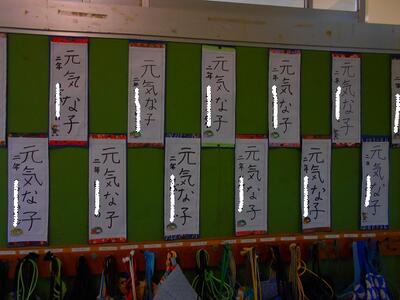 元気な子
二年
元気な子
二年
元気な子
二年
元気な子
二年
元気な子
二年
元気な子
二年
元気な子
二年
元気な子
二年
元気な子
二年
元気な子
二年
元気な子
二年